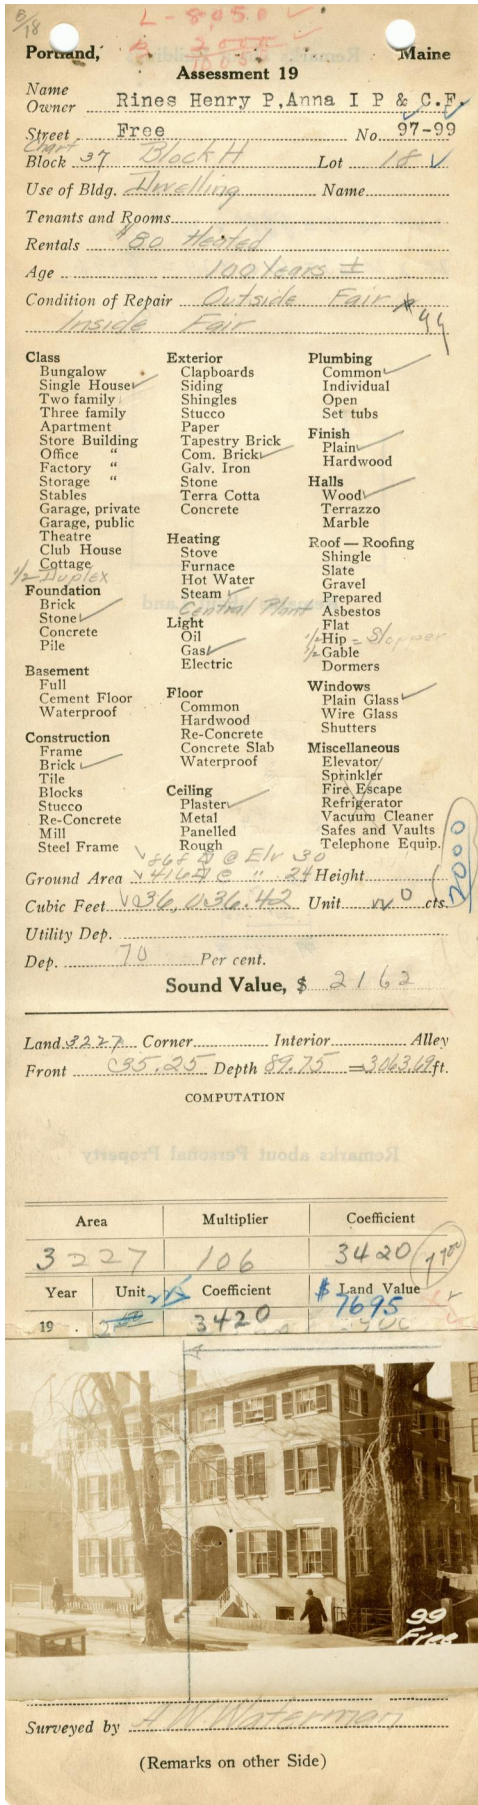 8/18
L - 8050 ✓
B 2000 ✓
Portland, Maine
Assessment 19
Name
Owner Rines Henry P, Anna I P & C.F.
Street Free No. 97-99
Chart
Block 37 Block H Lot 18 ✓
Use of Bldg. Dwelling Name
Tenants and Rooms
Rentals $80 Heated
Age 100 Years ±
Condition of Repair Outside Fair
Inside Fair
Class
Bungalow
Single House ✓
Two family
Three family
Apartment
Store Building
Office "
Factory "
Storage "
Stables
Garage, private
Garage, public
Theatre
Club House
Cottage
1/2 Duplex
Foundation
Brick
Stone ✓
Concrete
Pile
Basement
Full
Cement Floor
Waterproof
Construction
Frame
Brick ✓
Tile
Blocks
Stucco
Re-Concrete
Mill
Steel Frame
Exterior
Clapboards
Siding
Shingles
Stucco
Paper
Tapestry Brick
Com. Brick ✓
Galv. Iron
Stone
Terra Cotta
Concrete
Heating
Stove
Furnace
Hot Water
Steam ✓
Central Plant
Light
Oil
Gas ✓
Electric
Floor
Common
Hardwood
Re-Concrete
Concrete Slab
Waterproof
Ceiling
Plaster ✓
Metal
Panelled
Rough
Plumbing
Common ✓
Individual
Open
Set tubs
Finish
Plain ✓
Hardwood
Halls
Wood ✓
Terrazzo
Marble
Roof — Roofing
Shingle
Slate
Gravel
Prepared
Asbestos
Flat
1/2 Hip = Slopper
1/2 Gable
Dormers
Windows
Plain Glass ✓
Wire Glass
Shutters
Miscellaneous
Elevator
Sprinkler
Fire Escape
Refrigerator
Vacuum Cleaner
Safes and Vaults
Telephone Equip.
2000
✓ 868 @ Elv 30
Ground Area ✓ 416 @ " 24 Height
Cubic Feet ✓ 36,036.42 Unit 20 cts.
Utility Dep.
Dep. 70 Per cent.
Sound Value, $ 2162
Land 3227 Corner Interior Alley
Front 35.25 Depth 89.75 = 3063.69 ft.
COMPUTATION
Area Multiplier Coefficient
3227 106 3420
Year Unit Coefficient $ Land Value
19 3420 7695
99
Free
Surveyed by A W Waterman
(Remarks on other Side)